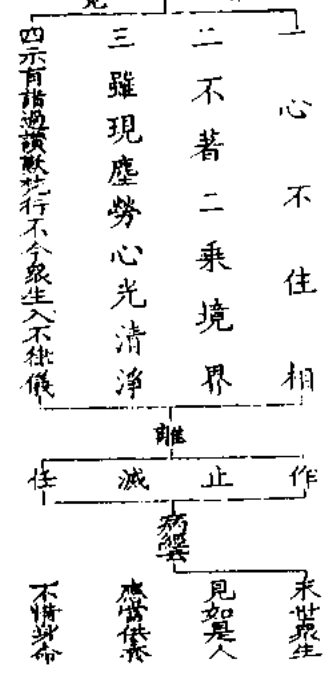 一心不住相
二不著二乘境界
三雖現塵勞心光清淨
四示有諸過讚歎梵行不令眾生入不律儀
離
作
止
滅
任
病
末世眾生
見如是人
應當供養
不惜身命